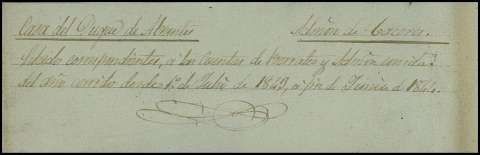 Casa del Duque de Abrantes Admon de Caceres.
Saldos correspondientes, a las Cuentas de Morales y Admon
del año corrido desde 1º de Julio de 1843, a fin de Junio de 1844.